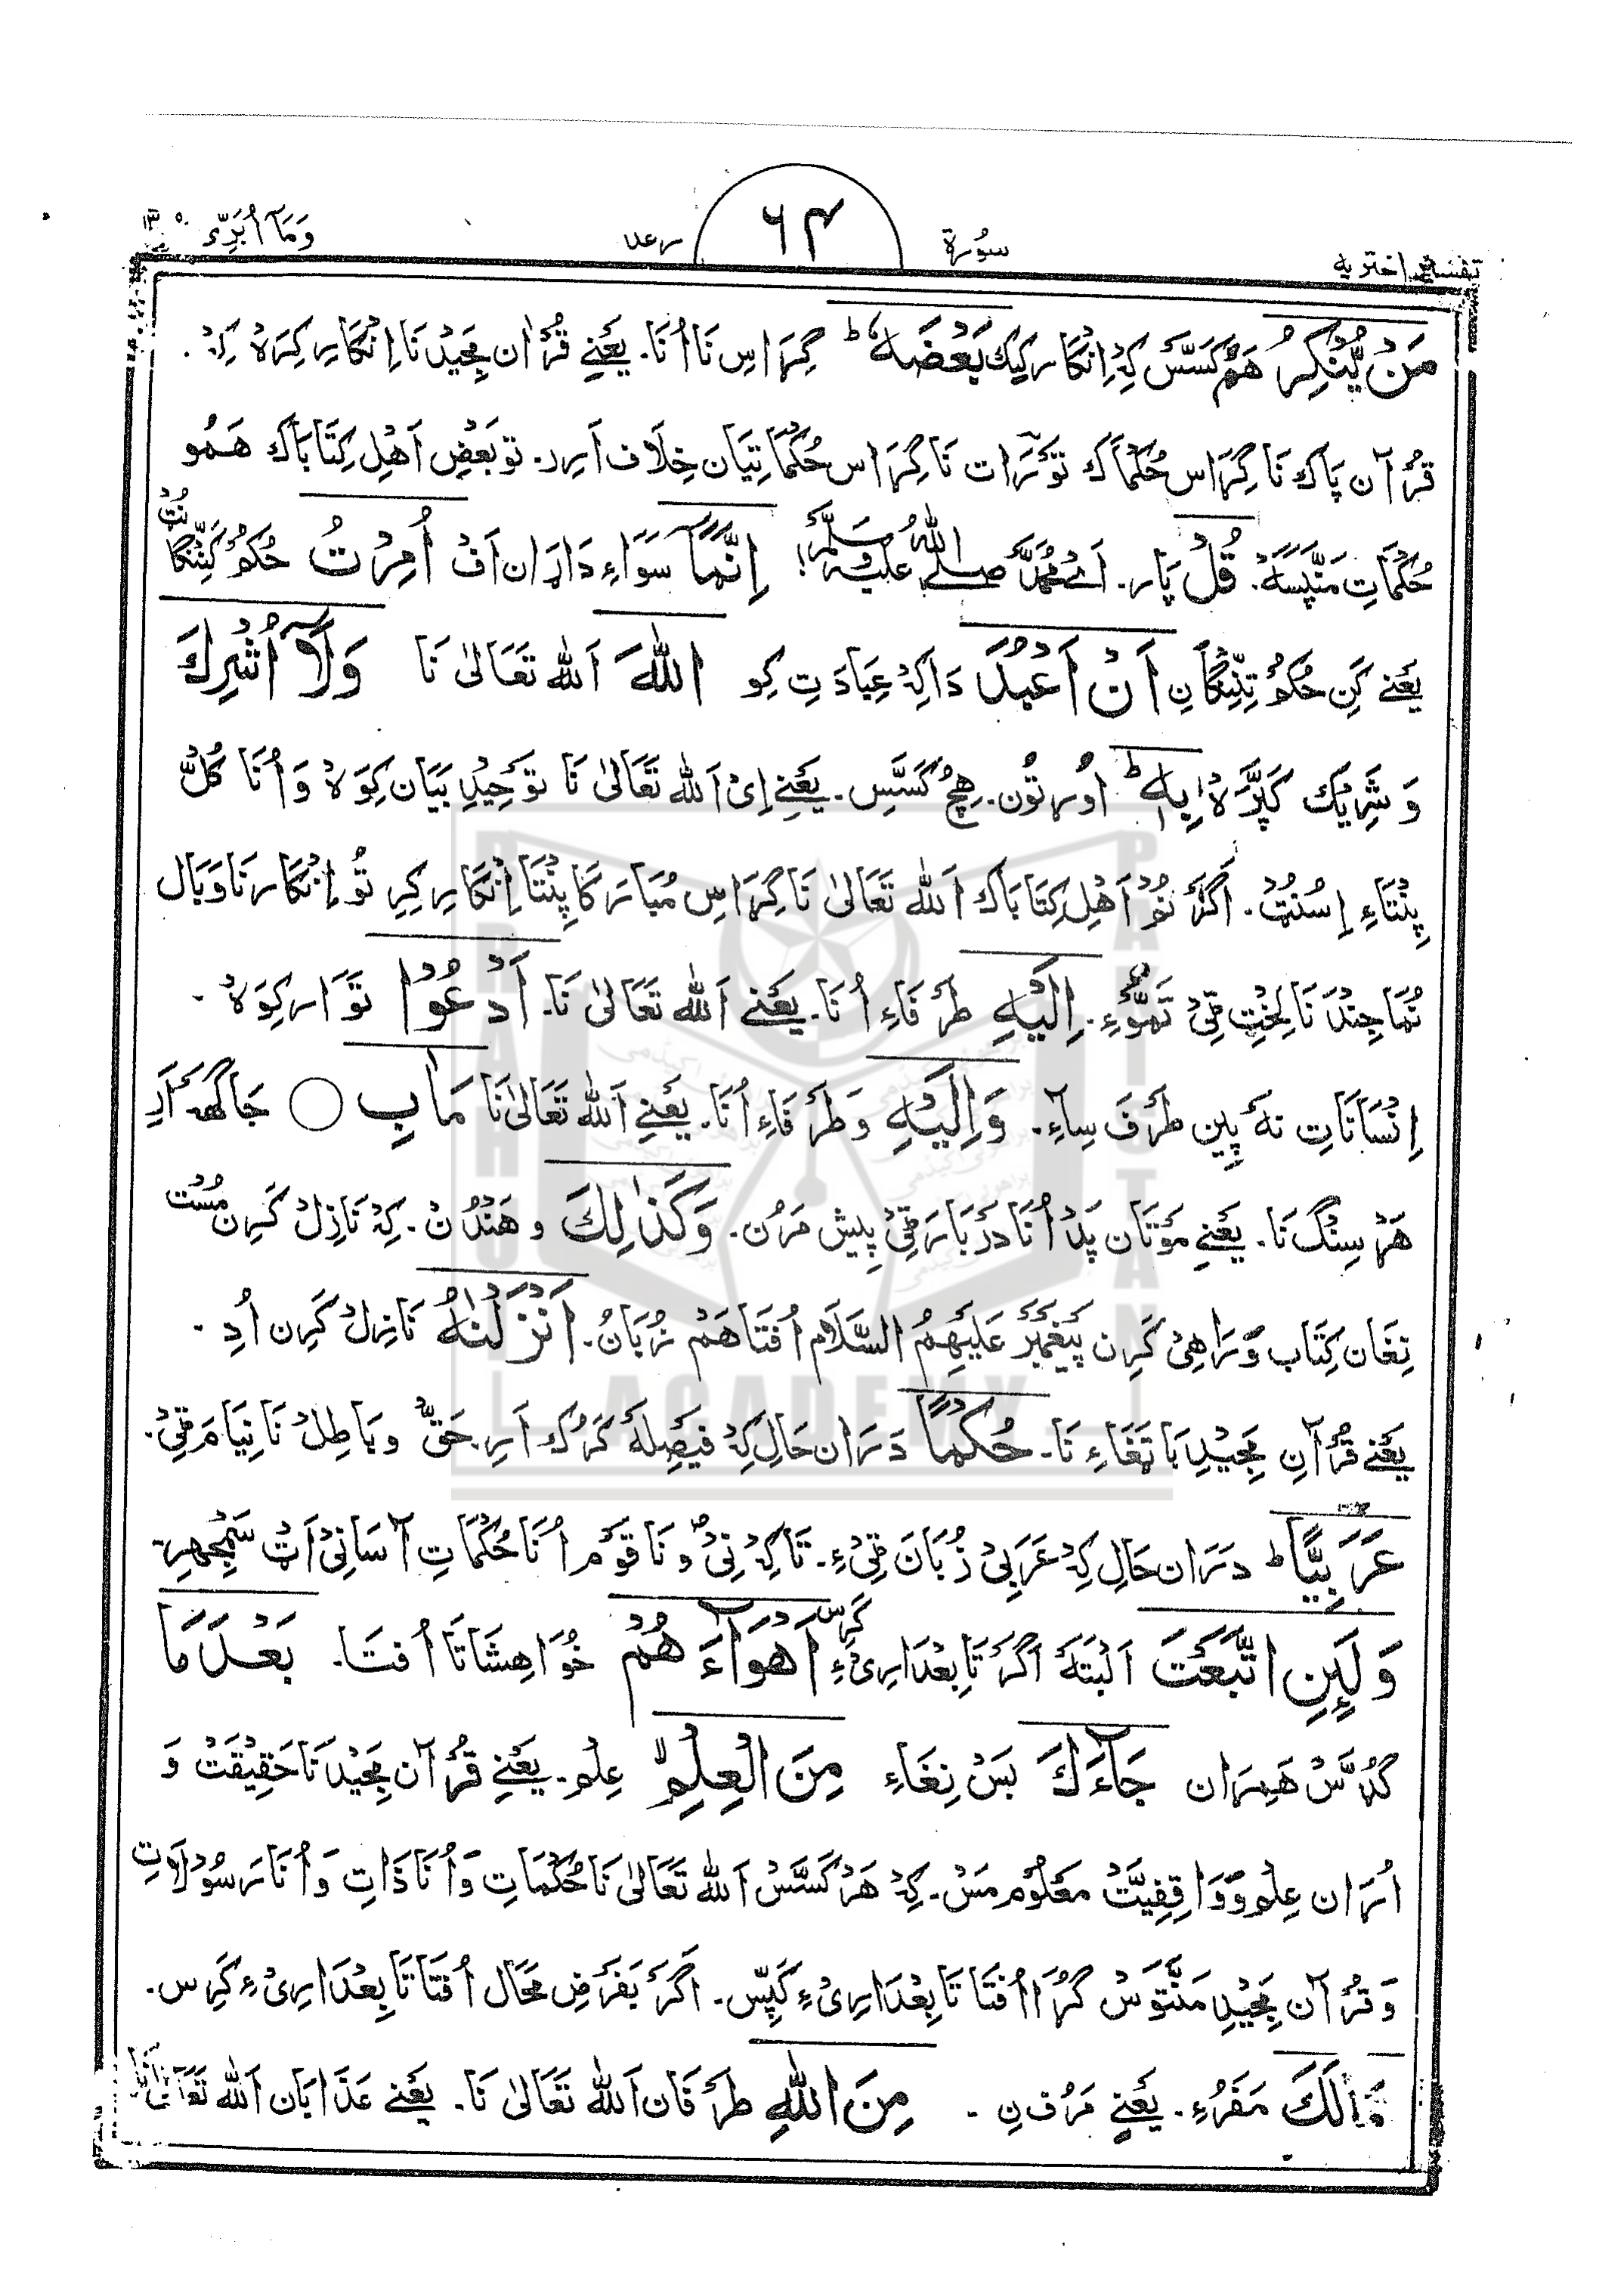 تفسیر اختریہ
سُورۃ
۶۴
رعد
وَمَآ اُبَرِّیُٔ ۱۳
مَنْ یُّنْکِرُ ھَمْ کَسَّسْ کِہْ اِنْکَار کِیْک بَعْضَہٗ ؕ گِرَاسِ نَا اُنَا۔ یَعْنِے قُرْاٰن مَجِیْد نَا اِنْکَار کِرَہْ کِہْ۔
قُرْآن پَاک نَا گِرَاس حُکْمَاک تَوْرَات نَا گِرَاس حُکْمَاتِیَان خِلَاف اَرِر۔ تو بَعْضِ اَھْلِ کِتَابَاک ھَمُو
حُکْمَاتِ مَنِّپَسَہْ۔ قُلْ پَار۔ اَے مُحَمَّدْ صلے اللہ علیہ وسلم! اِنَّمَآ سَوَاءِ دَارَان اَفْ اُمِرْتُ حُکُم کَنِّنْگَانُٹ
یَعْنِے کَنِ حُکُم تِنِّنْگَانِ اَنْ اَعْبُدَ دَاکِہْ عِبَادَتِ کِو اللّٰہَ اَللّٰہ تَعَالیٰ نَا وَلَآ اُشْرِکَ
وَ شَرِیْک کَپَّرَہْ بِہٖ ؕ اوْرتُوْن۔ ھِچْ کَسَّسِ۔ یَعْنِے اِیْ اَللّٰہ تَعَالیٰ نَا تَوْحِیْدِ بَیَان کِوَہْ وَ اُنَا کُلّ
پِنْتَاءِ اِسُنْٹ۔ اَگَرْ نُمْ اَھْلِ کِتَابَاک اَللّٰہ تَعَالیٰ نَا گِرَاسِ مُبَارَکَا پِنْتَا اِنْکَار کِرِ تُو اِنْکَار نَا وَبَال
نُمَا جِنْدَ نَا لِخِتْ ٹِیْ تَمُّوْءِ۔ اِلَیْہِ طَرَفَاءِ اُنَا۔ یَعْنِے اَللّٰہ تَعَالیٰ نَا۔ اَدْعُوْا تَوَار کِوَہْ۔
اِنْسَانَاتِ نَہ پِین طَرَفَ سِاءِ۔ وَاِلَیْہِ وَ طَرَفَاءِ اُنَا۔ یَعْنِے اَللّٰہ تَعَالیٰ نَا مَاٰبِ ○ جَاگَھَہ اَرِ
ھَرْ سِنْگ نَا۔ یَعْنِے مَوْتَان پَدْ اُنَا دَرْبَارَ ٹِیْ پِیش مَرُن۔ وَکَذٰلِکَ و ھَنْدُنْ۔ کِہْ نَازِلْ کَرِن مُسْت
نِغَان کِتَاب وَ رَاھِیْ کَرِن پَیْغَمْبَر عَلَیْھِمُ السَّلَام اُفْتَا ھَمْ زُبَانْ۔ اَنْزَلْنٰہُ نَازِلْ کَرِن اُدِ۔
یَعْنِے قُرْآنِ مَجِیْدِ بَا تَغَاءِ نَا۔ حُکْمًا دَرَان حَالِ کِہْ فَیْصِلَہ کَرُک اَرِ۔ حَقّ و بَاطِلْ نَا نِیَام ٹِیْ۔
عَرَبِیًّا ؕ دَرَان حَالِ کِہْ عَرَبِیْ زُبَان ٹِیْ ءِ۔ تَاکِہْ نِیْ و نَا قَوْم اُنَا حُکْمَاتِ آسَانِیْ اَٹ سَمْجِھرِ۔
وَلَئِنِ اتَّبَعْتَ اَلْبَتَّہ اَگَرْ تَابِعْدَارِیْ ءِ کَرِس اَھْوَآءَ ھُمْ خُوَاھِشَاتَا اُفْتَا۔ بَعْدَ مَا
گُدَّسْ ھَمِرَان جَآءَکَ بَسْ نِغَاءِ مِنَ الْعِلْمِ ۙ عِلْم۔ یَعْنِے قُرْآن مَجِیْد نَا حَقِیْقَتْ وَ
اُرَان عِلْم وَ وَاقِفِیَّتْ مَعْلُوْم مَسْ۔ کِہْ ھَرْ کَسَّسْ اَللّٰہ تَعَالیٰ نَا حُکْمَاتِ وَ اُنَا ذَاتِ وَ اُنَا رَسُوْلَاتِ
وَ قُرْآن مَجِیْدِ مَنَّتَوَسْ گُڑَا اُفْتَا تَابِعْدَارِیْ ءِ کَپِّس۔ اَگَرْ بَفَرْضِ مَحَال اُفْتَا تَابِعْدَارِیْ ءِ کَرِس۔
مَالَکَ مَفَرُءِ۔ یَعْنِے مَرُفْ نِ۔ مِنَ اللّٰہِ طَرَفَان اَللّٰہ تَعَالیٰ نَا۔ یَعْنِے عَذَابَان اَللّٰہ تَعَالیٰ نَا
BRAHUI ACADEMY PAKISTAN